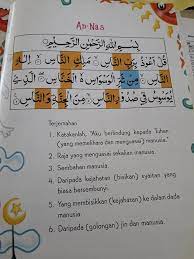 An-Nas
بِسْمِ اللَّهِ الرَّحْمَٰنِ الرَّحِيمِ
قُلْ أَعُوذُ بِرَبِّ النَّاسِ ۝ مَلِكِ النَّاسِ ۝ إِلَٰهِ
النَّاسِ ۝ مِنْ شَرِّ الْوَسْوَاسِ الْخَنَّاسِ ۝ الَّذِي
يُوَسْوِسُ فِي صُدُورِ النَّاسِ ۝ مِنَ الْجِنَّةِ وَالنَّاسِ ۝
Terjemahan
1. Katakanlah, "Aku berlindung kepada Tuhan
(yang memelihara dan menguasai) manusia.
2. Raja yang menguasai sekalian manusia.
3. Sembahan manusia.
4. Daripada kejahatan (bisikan) syaitan yang
biasa bersembunyi.
5. Yang membisikkan (kejahatan) ke dalam dada
manusia.
6. Daripada (golongan) jin dan manusia.